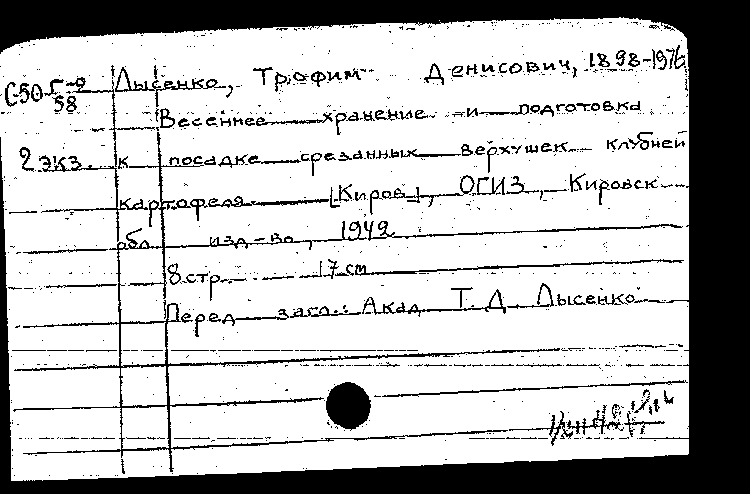 Лысенко, Трофим Денисович, 1898-1976
С-50 Г-9
58
Весеннее хранение и подготовка
2 экз. к посадке срезанных верхушек клубней
картофеля [Киров], ОГИЗ, Кировск
обл. изд-во, 1942
8 стр. 17 cm
Перед загл.: Акад Т. Д. Лысенко